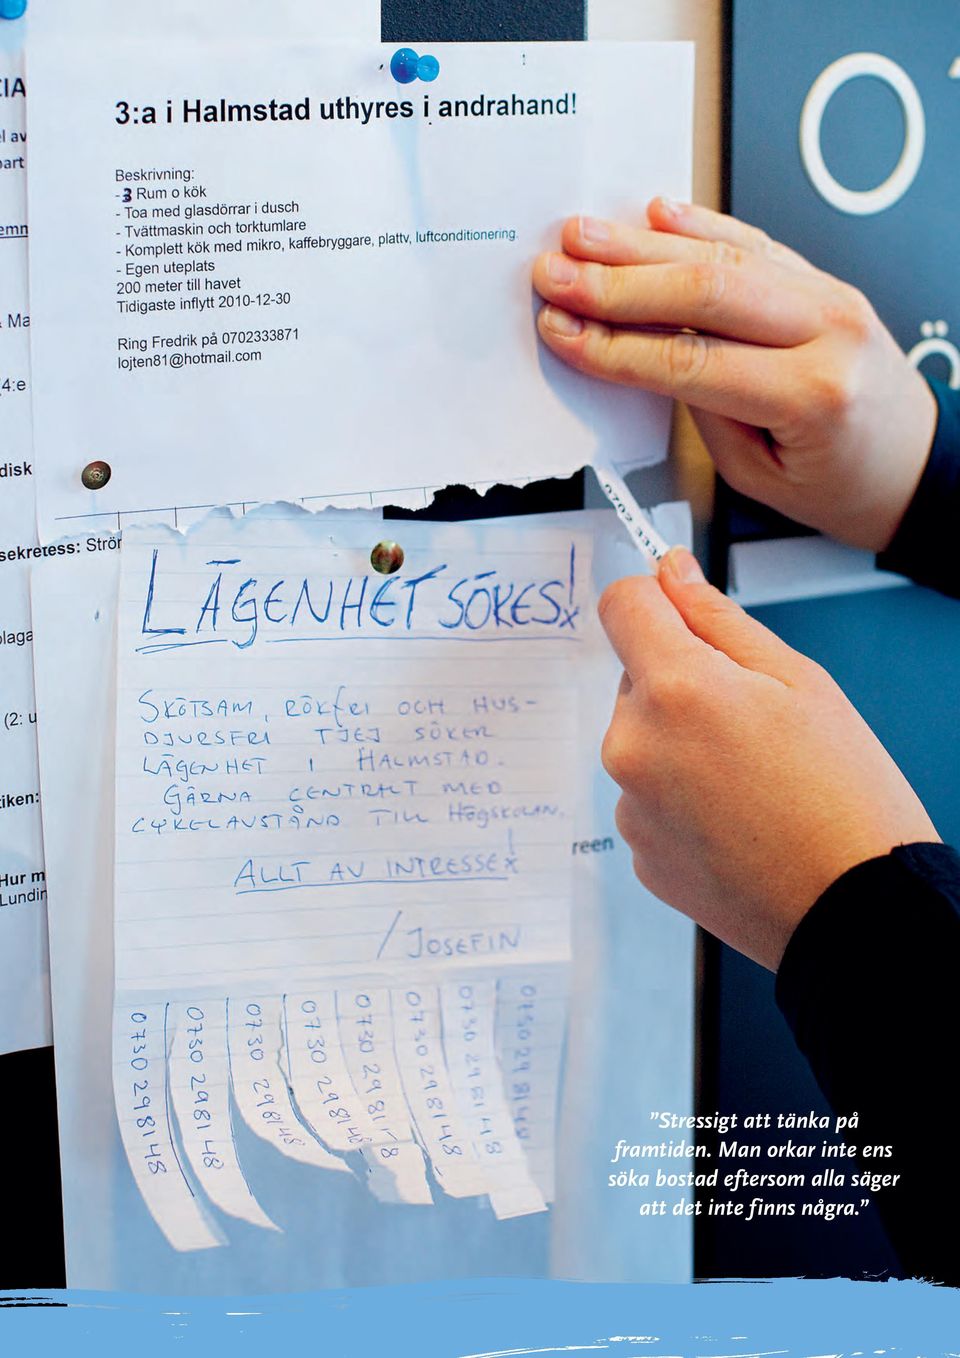 3:a i Halmstad uthyres i andrahand!
Beskrivning:
- 3 Rum o kök
- Toa med glasdörrar i dusch
- Tvättmaskin och torktumlare
- Komplett kök med mikro, kaffebryggare, plattv, luftconditionering.
- Egen uteplats
200 meter till havet
Tidigaste inflytt 2010-12-30
Ring Fredrik på 0702333871
lojten81@hotmail.com
0702 333
l av
art
Ma
(4:e
disk
sekretess: Strör
(2: u
iken:
Hur m
Lundin
LÄGENHET SÖKES!
SKÖTSAM, RÖKFRI OCH HUS-
DJURSFRI TJEJ SÖKER
LÄGENHET I HALMSTAD.
GÄRNA CENTRALT MED
CYKELAVSTÅND TILL Högskolan.
ALLT AV INTRESSE!
reen
/JOSEFIN
0730 298148
0730 298148
0730 298148
0730 298148
0730 298148
0730 298148
0730 298148
0730 298148
”Stressigt att tänka på
framtiden. Man orkar inte ens
söka bostad eftersom alla säger
att det inte finns några.”